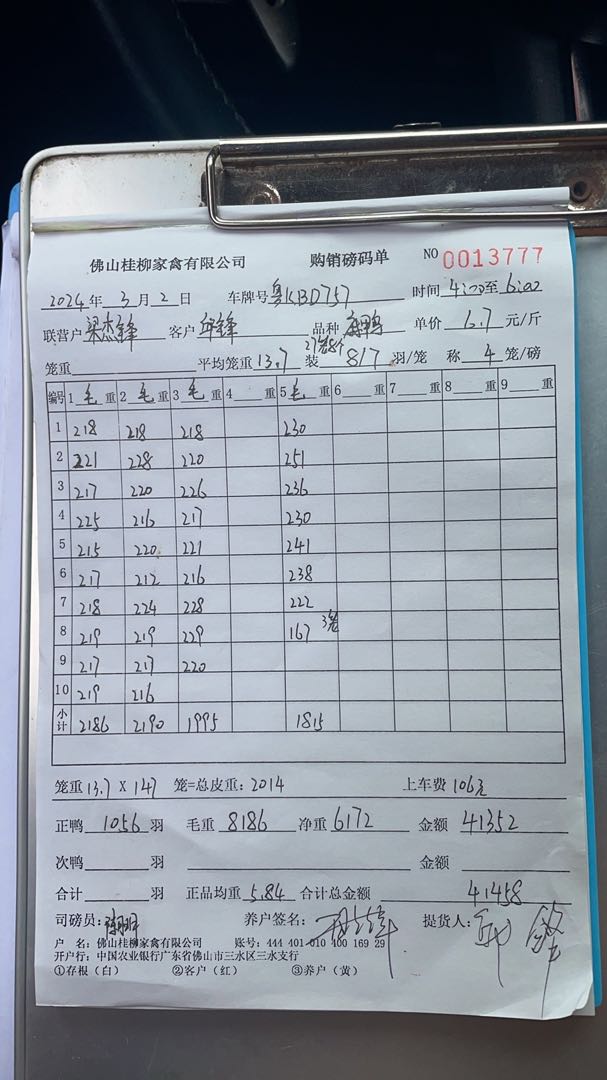 佛山桂柳家禽有限公司 购销磅码单 NO 0013777
2024年 3月 2日 车牌号 粤KBD757 时间 4:00至6:00
联营户 梁杰锋 客户 邱锋 品种 单价 6.7 元/斤
笼重 平均笼重 13.7 装 817 羽/笼 称 4 笼/磅
编号 1 毛 重 2 毛 重 3 毛 重 4 重 5 毛 重 6 重 7 重 8 重 9 重
1 218 218 218 230
2 221 228 220 251
3 217 220 226 236
4 225 216 217 230
5 215 220 221 241
6 217 212 216 238
7 218 224 228 222
8 219 219 229 167 3笼
9 217 217 220
10 219 216
小计 2186 2190 1995 1815
笼重 13.7 X 147 笼=总皮重: 2014 上车费 106元
正鸭 1056 羽 毛重 8186 净重 6172 金额 41352
次鸭 羽 金额
合计 羽 正品均重 5.84 合计总金额 41458
司磅员: 养户签名: 提货人:
户 名: 佛山桂柳家禽有限公司 账号: 444 401 010 400 169 29
开户行: 中国农业银行广东省佛山市三水区三水支行
①存根（白） ②客户（红） ③养户（黄）